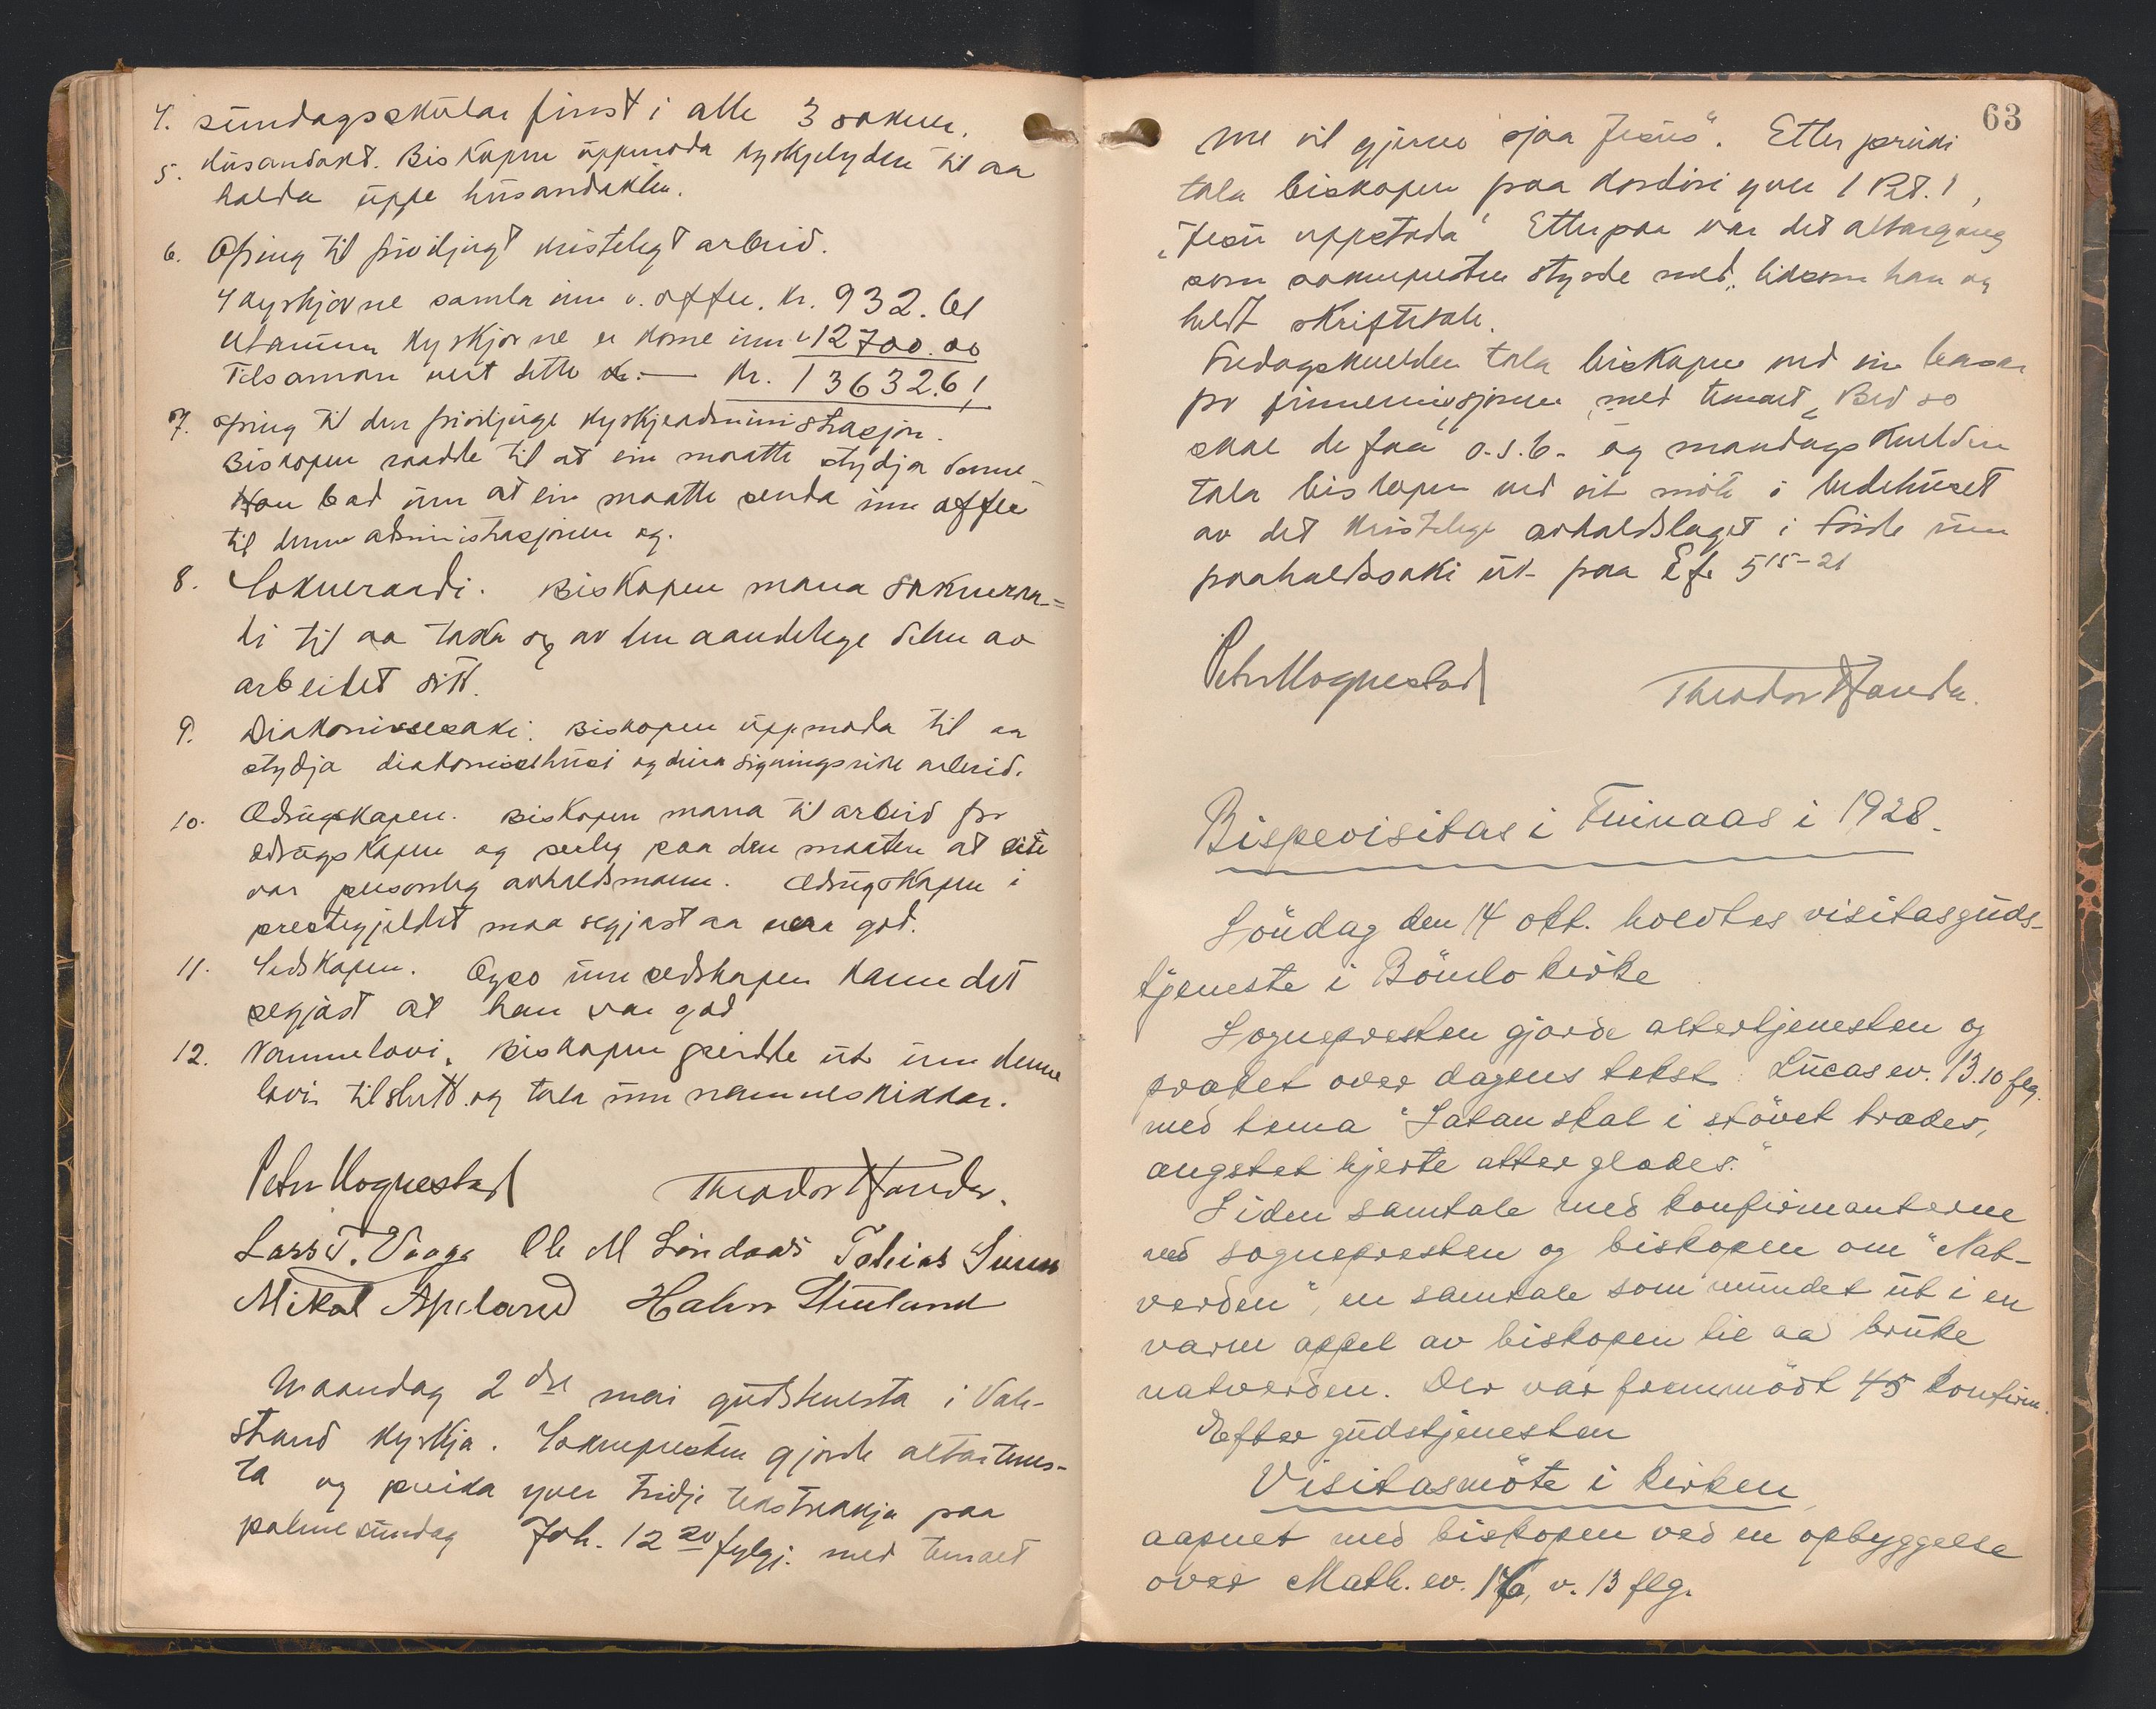 4. sundagsskular finst i alle 3 sokner.
5. Husandakt. Biskopen uppmoda kyrkjelyden til aa
halda uppe husandakten.
6. Ofring til friviljugt kristelegt arbeid.
I kyrkjorne samla inn v. offer. Kr. 932.61
Utanum kyrkjorne er kome inn " 12700.00
Tilsaman vert dette Kr. 13632.61
7. Ofring til den friviljuge kyrkjeadministrasjon.
Biskopen raadde til at ein maatte stydja denne
Han bad um at ein maatte senda inn offer
til denne administrasjonen og.
8. Sokneraadi. Biskopen mana soknera-
di til aa taka seg av den aandelege delen av
arbeidet sitt.
9. Diakonissesaki: Biskopen uppmoda til aa
stydja diakonissehusi og deira signingsrike arbeid.
10. Ædrugskapen. Biskopen mana til arbeid for
ædrugskapen og serleg paa den maaten at
var personleg avhaldsmann. Ædrugskapen i
prestegjeldet maa segjast aa vera god.
11. Sedskapen. Ogso um sedskapen kann det
segjast at han var god
12. Namnelovi. Biskopen greidde ut um denne
lovi tilslutt og tala um namneskikkar.
Peter Hognestad Theodor Handa.
Lars T. Vaage Ole M Lindaas Tobias
Mikal Apeland Hakon Stueland
Maandag 2dre mai gudstenesta i Vale-
strand kyrkja. Soknepresten gjorde altartenes-
ta og preika yver tridje tekstrekkja paa
palmesundag Joh. 12 20 fylgj. med temaet
63
"me vil gjerne sjaa Jesus". Etter preiki
tala biskopen paa kordöri yver 1 Pet. 1,
"Jesu uppstoda" Etterpaa var det altargang
som soknepresten styrde med, likesom han og
heldt skriftetale.
tala biskopen ved ein basar
for finnemisjonen med temaet "Bed so
skal de faa" o.s.b. og mandagskvelden
tala biskopen ved eit möte i bedehuset
av det kristelege avhaldslaget i Förde um
paahaldssaki ut fraa Ef. 5 15-21
Peter Hognestad Theodor Handa.
Bispevisitas i Finnaas i 1928.
Söndag den 14 okt. holdtes visitasguds-
tjeneste i Bömlo kirke
Sognepresten gjorde altertjenesten og
præket over dagens tekst: Lucas ev. 13.10 flg.
med tema "Satan skal i stövet trædes,
ængstet hjerte atter glædes."
Siden samtale med konfirmanterne
ved sognepresten og biskopen om "Nat-
verden", en samtale som mundet ut i en
varm appel av biskopen til aa bruke
natverden. Der var fremmödt 45 konfirm.
Efter gudstjenesten
Visitasmöte i kirken
aapnet med biskopen ved en opbyggelse
over Math. ev. 16, v. 13 flg.